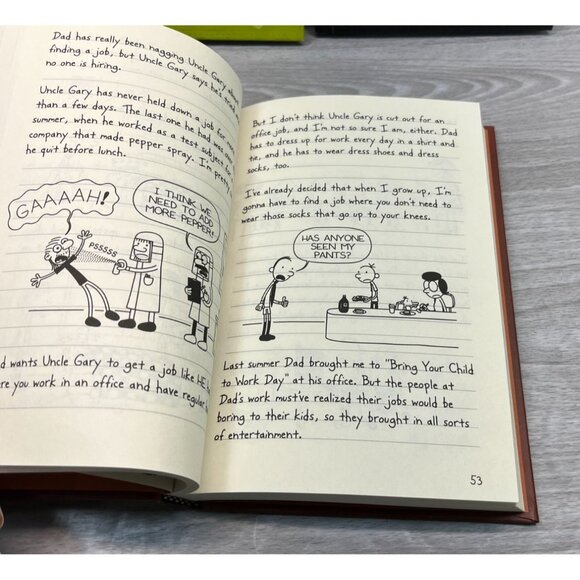 Dad has really been nagging Uncle Gary about
finding a job, but Uncle Gary says he's tried
no one is hiring.
Uncle Gary has never held down a job for more
than a few days. The last one he had was
summer, when he worked as a test subject for
company that made pepper spray. I'm pretty
he quit before lunch.
GAAAAAH!
PSSSSS
I THINK WE
NEED TO ADD
MORE PEPPER!
wants Uncle Gary to get a job like HE
you work in an office and have regular
But I don't think Uncle Gary is cut out for an
office job, and I'm not so sure I am, either. Dad
has to dress up for work every day in a shirt and
tie, and he has to wear dress shoes and dress
socks, too.
I've already decided that when I grow up, I'm
gonna have to find a job where you don't need to
wear those socks that go up to your knees.
HAS ANYONE
SEEN MY
PANTS?
Last summer Dad brought me to "Bring Your Child
to Work Day" at his office. But the people at
Dad's work must've realized their jobs would be
boring to their kids, so they brought in all sorts
of entertainment.
53